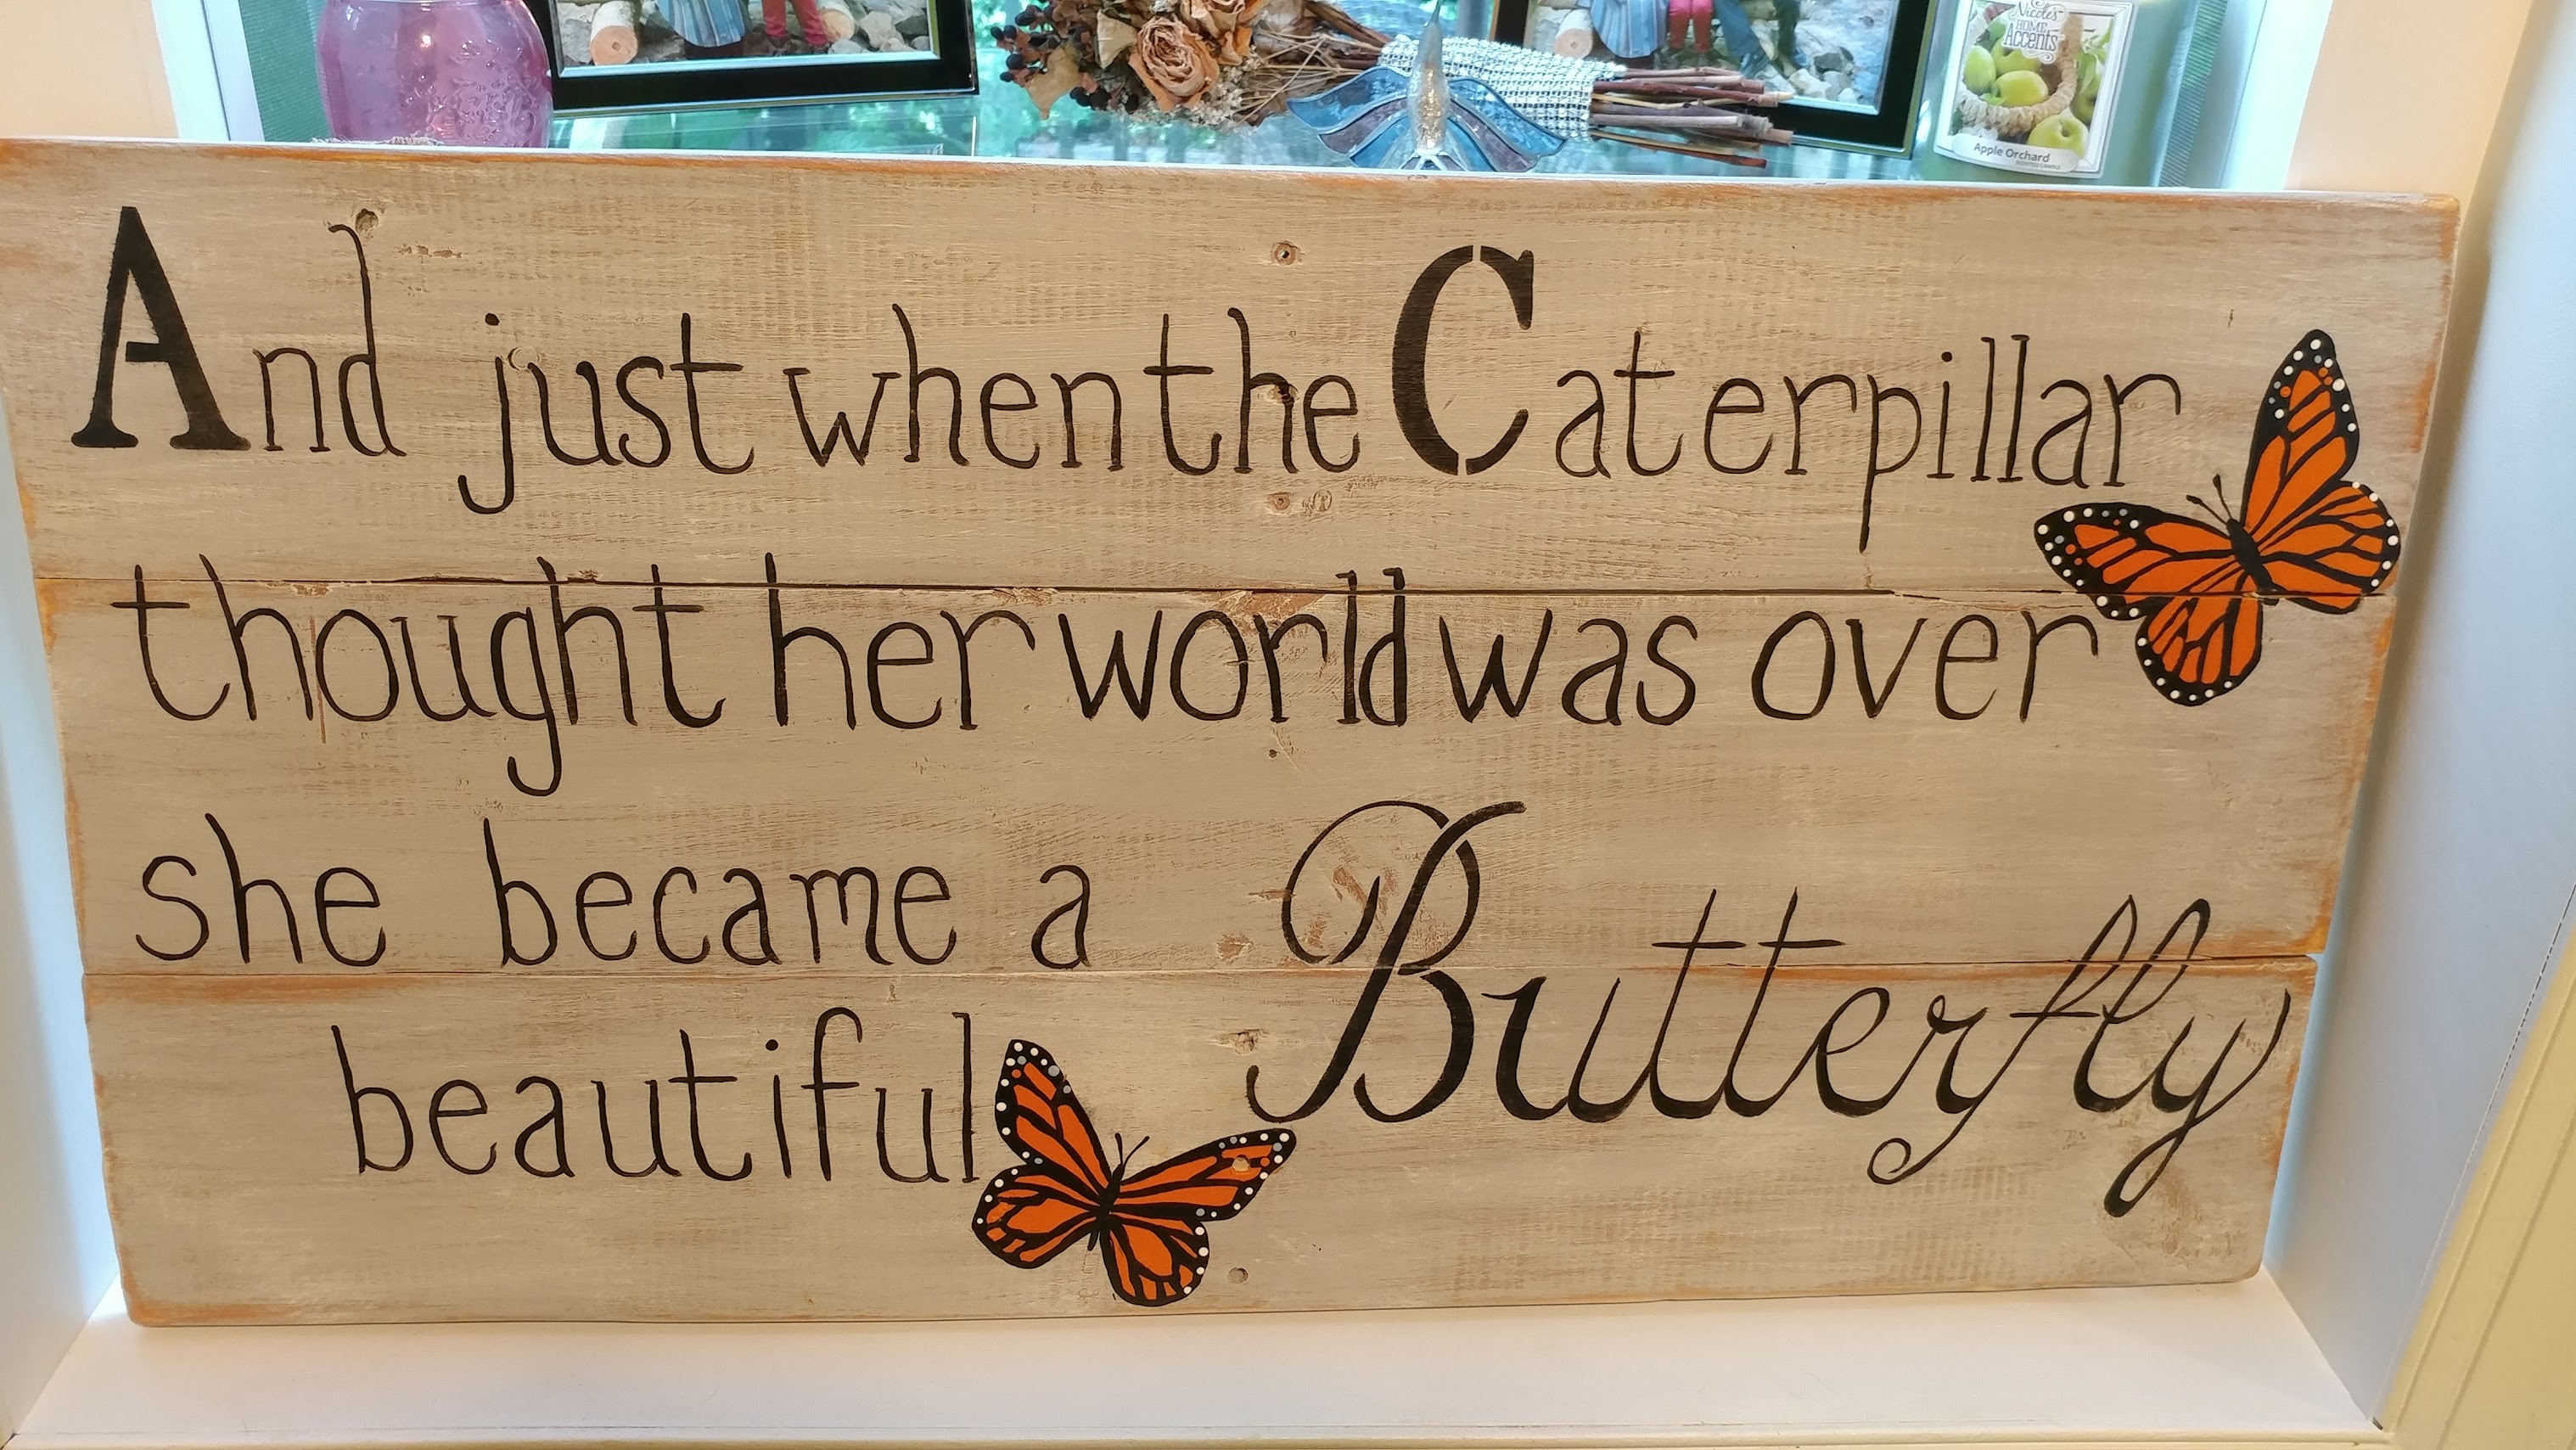 Nicole's
HOME
Accents
Apple Orchard
SCENTED CANDLE
And just when the Caterpillar
thought her world was over
she became a
beautiful Butterfly